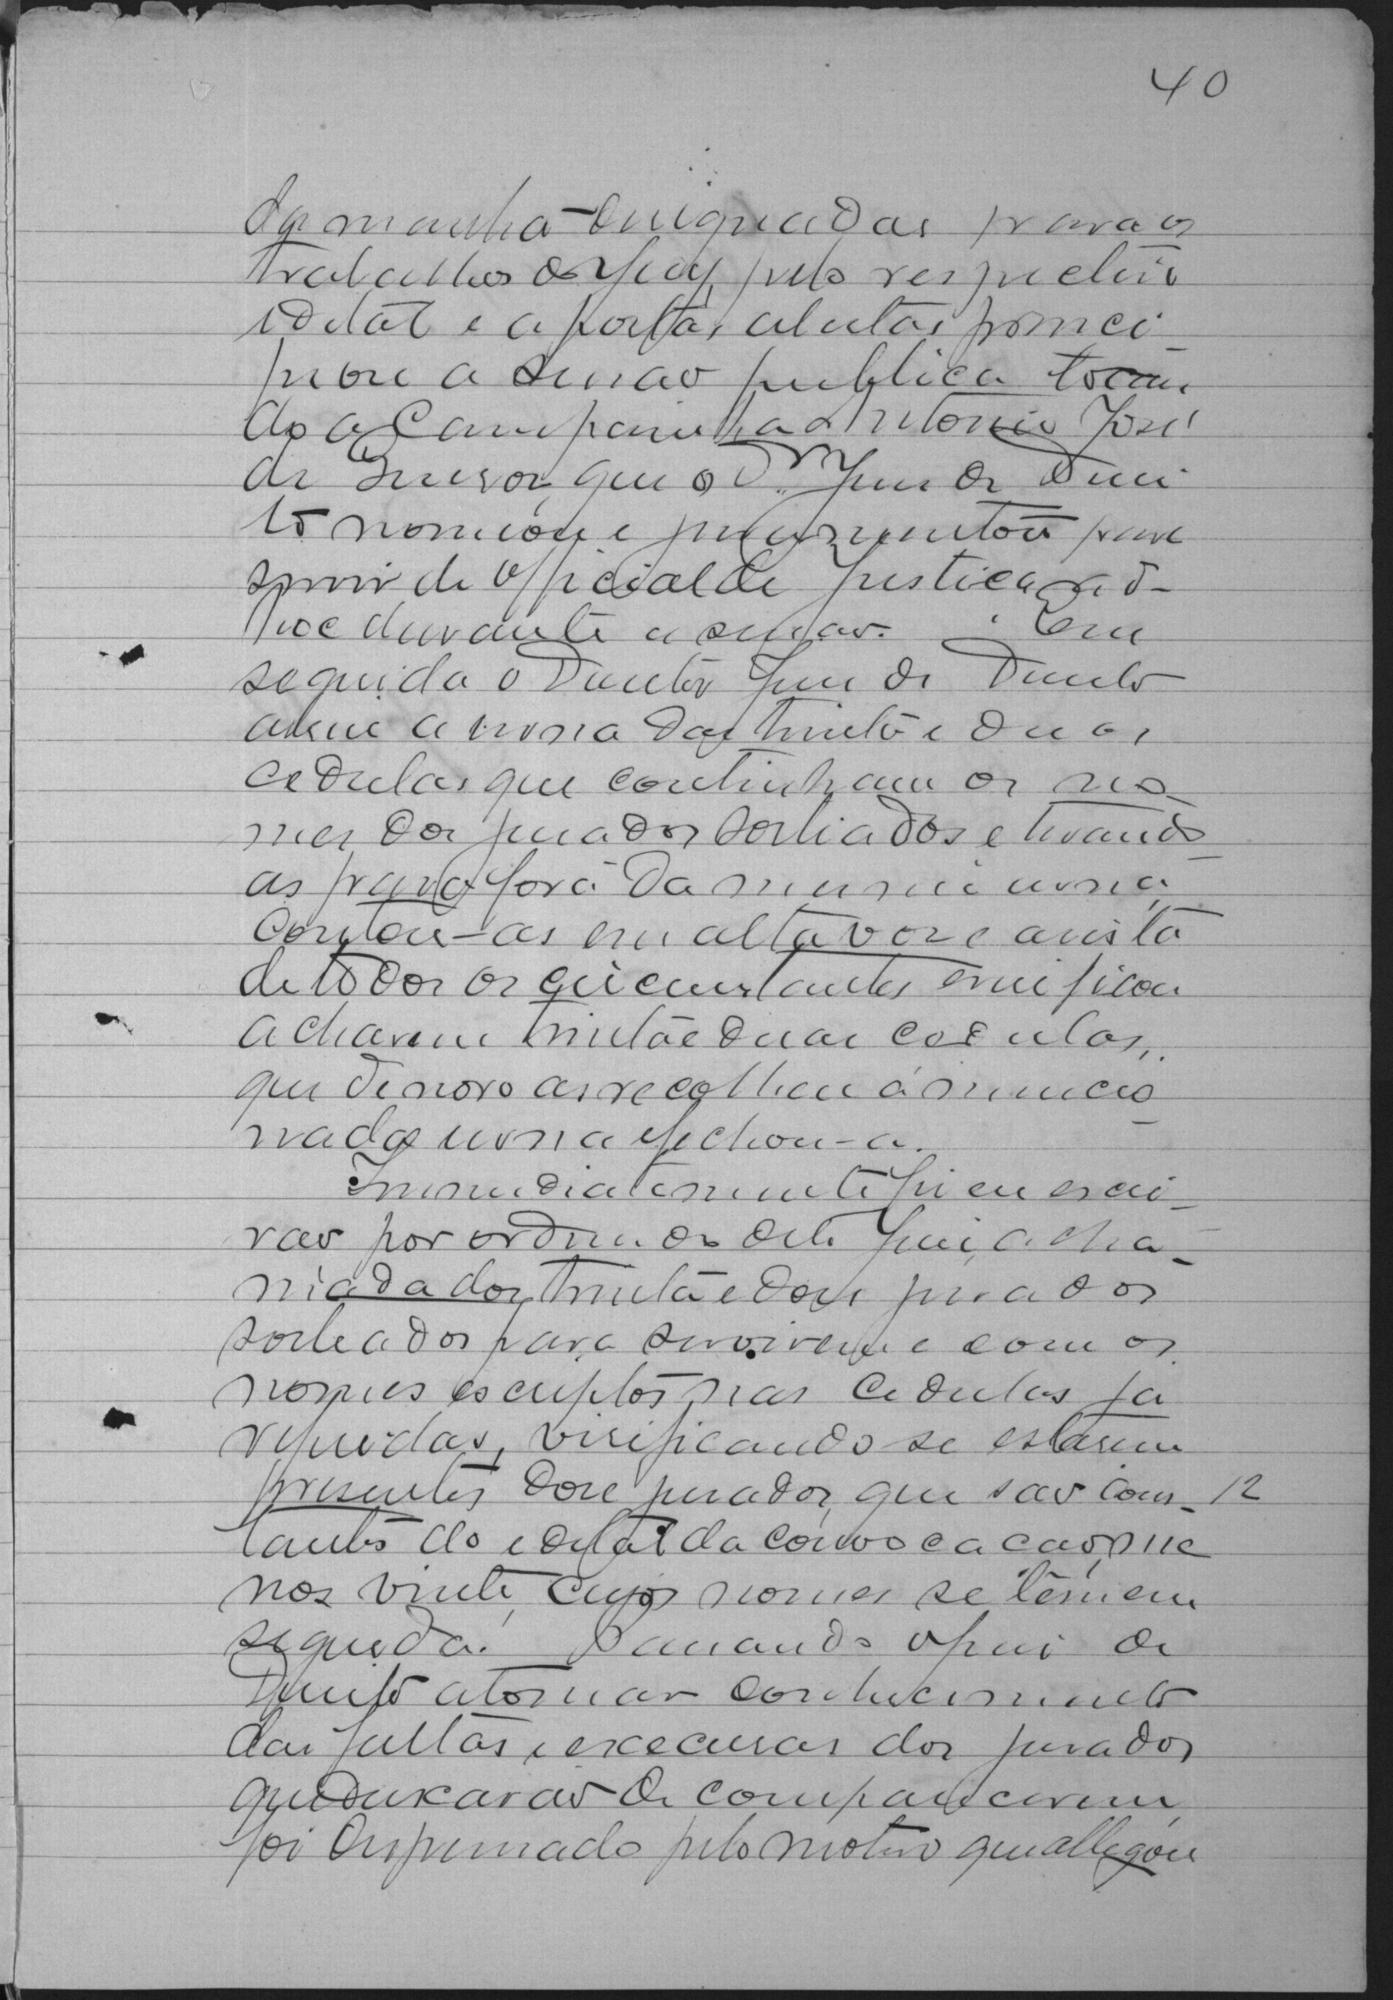 40
da manhã designadas para os
trabalhos do Jury, pelo respectivo
edital e a portas abertas princi-
piou a sessão publica tocan
do a Campainha Antonio José
de que o Dr. Juiz de Direi
to nomeou e juramentou para
servir de Official de Justiça ad-
hoc durante a sessão. Em
seguida o Doutor Juiz de Direito
abriu a urna das trinta e duas
cedulas que continham os no-
mes dos jurados sorteados e tirando-
as para fora da mesma urna,
contou-as em alta voz e a vista
de todos os circumstantes e verificou
acharem trinta e duas cedulas,
que de novo as recolheu á mencio-
nada urna e fechou-a.
Immediatamente fiz eu escri-
vão por ordem do dito Juiz, a cha-
mada dos trinta e dous jurados
sorteados para servirem e com os
nomes escriptos nas cedulas ja
referidas, virificando-se estarem
presentes doze jurados, que são cons- 12
tantes do edital da convocação, me
nos vinte, cujos nomes se têm em
seguida. Passando o Juiz de
Direito a tomar conhecimento
das faltas e excusas dos jurados
que deixarão de comparecerem,
foi dispensado pelo motivo que allegou